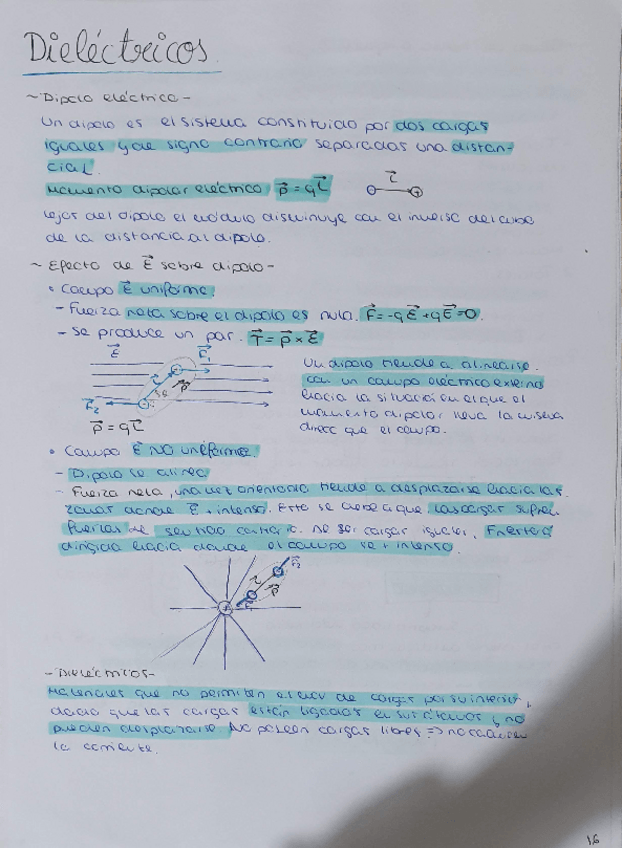 Dieléctricos
~ Dipolo eléctrico -
Un dipolo es el sistema constituido por dos cargas
iguales y de signo contrario separadas una distan-
cia L.
Momento dipolar eléctrico p⃗ = qL⃗
L⃗
- +
Lejos del dipolo el módulo disminuye con el inverso del cubo
de la distancia al dipolo.
~ Efecto de E⃗ sobre dipolo -
• Campo E⃗ uniforme.
- Fuerza neta sobre el dipolo es nula. F⃗ = -qE⃗ + qE⃗ = 0.
- Se produce un par. T⃗ = p⃗ × E⃗
E⃗ F⃗₁
F⃗₂ p⃗
p⃗ = qL⃗
Un dipolo tiende a alinearse
con un campo eléctrico externo
hacia la situación en el que el
momento dipolar lleva la misma
direcc que el campo.
• Campo E⃗ NO uniforme.
- Dipolo se alinea
- Fuerza neta, una vez orientado tiende a desplazarse hacia las
zonas donde E⃗ + intenso. Esto se debe a que las cargas sufren
fuerzas de sentido contrario. Al ser cargas iguales, Fneta
dirigida hacia donde el campo se + intenso.
+ p⃗
- Dieléctricos -
Materiales que no permiten el mov de cargas por su interior,
dado que las cargas están ligadas en sus átomos y no
pueden desplazarse. No poseen cargas libres => no conducen
la corriente.
16